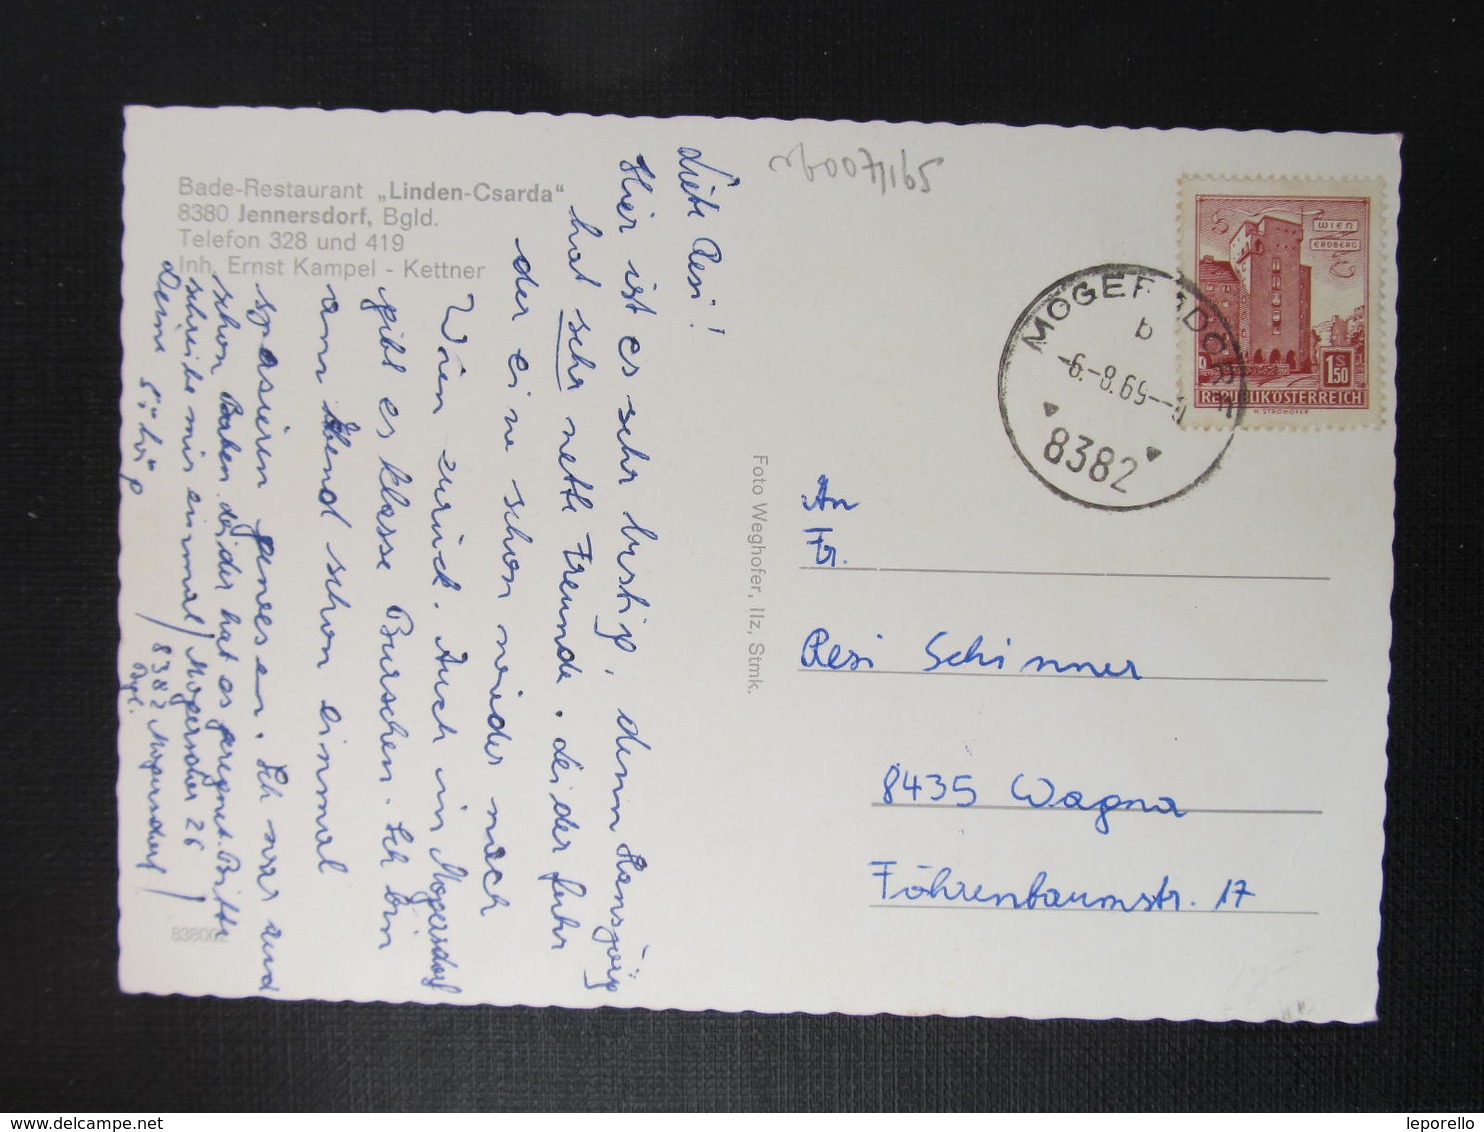 Bade-Restaurant „Linden-Csarda“
8380 Jennersdorf, Bgld.
Telefon 328 und 419
Inh. Ernst Kampel - Kettner
Liebe Resi!
Hier ist es sehr lustig, denn Hansjörg
hat sehr nette Freunde. Leider fuhr
der eine schon wieder nach
Wien zurück. Auch in Mogersdorf
gibt es klasse Burschen. Ich bin
am Abend schon einmal
spazieren gewesen. Ich war auch
schon Baden leider hat es geregnet. Bitte
schreibe mir einmal / Mogersdorf 26
Deine / 8382 Mogersdorf /
Bgl.
838002
Foto Weghofer, Ilz, Stmk.
WIEN
ERDBERG
1 S 50
REPUBLIK ÖSTERREICH
H. STROHOFER
MOGERSDORF
b
-6.-8.69--
8382
An
Fr.
Resi Schinner
8435 Wagna
Föhrenbaumstr. 17
leporello